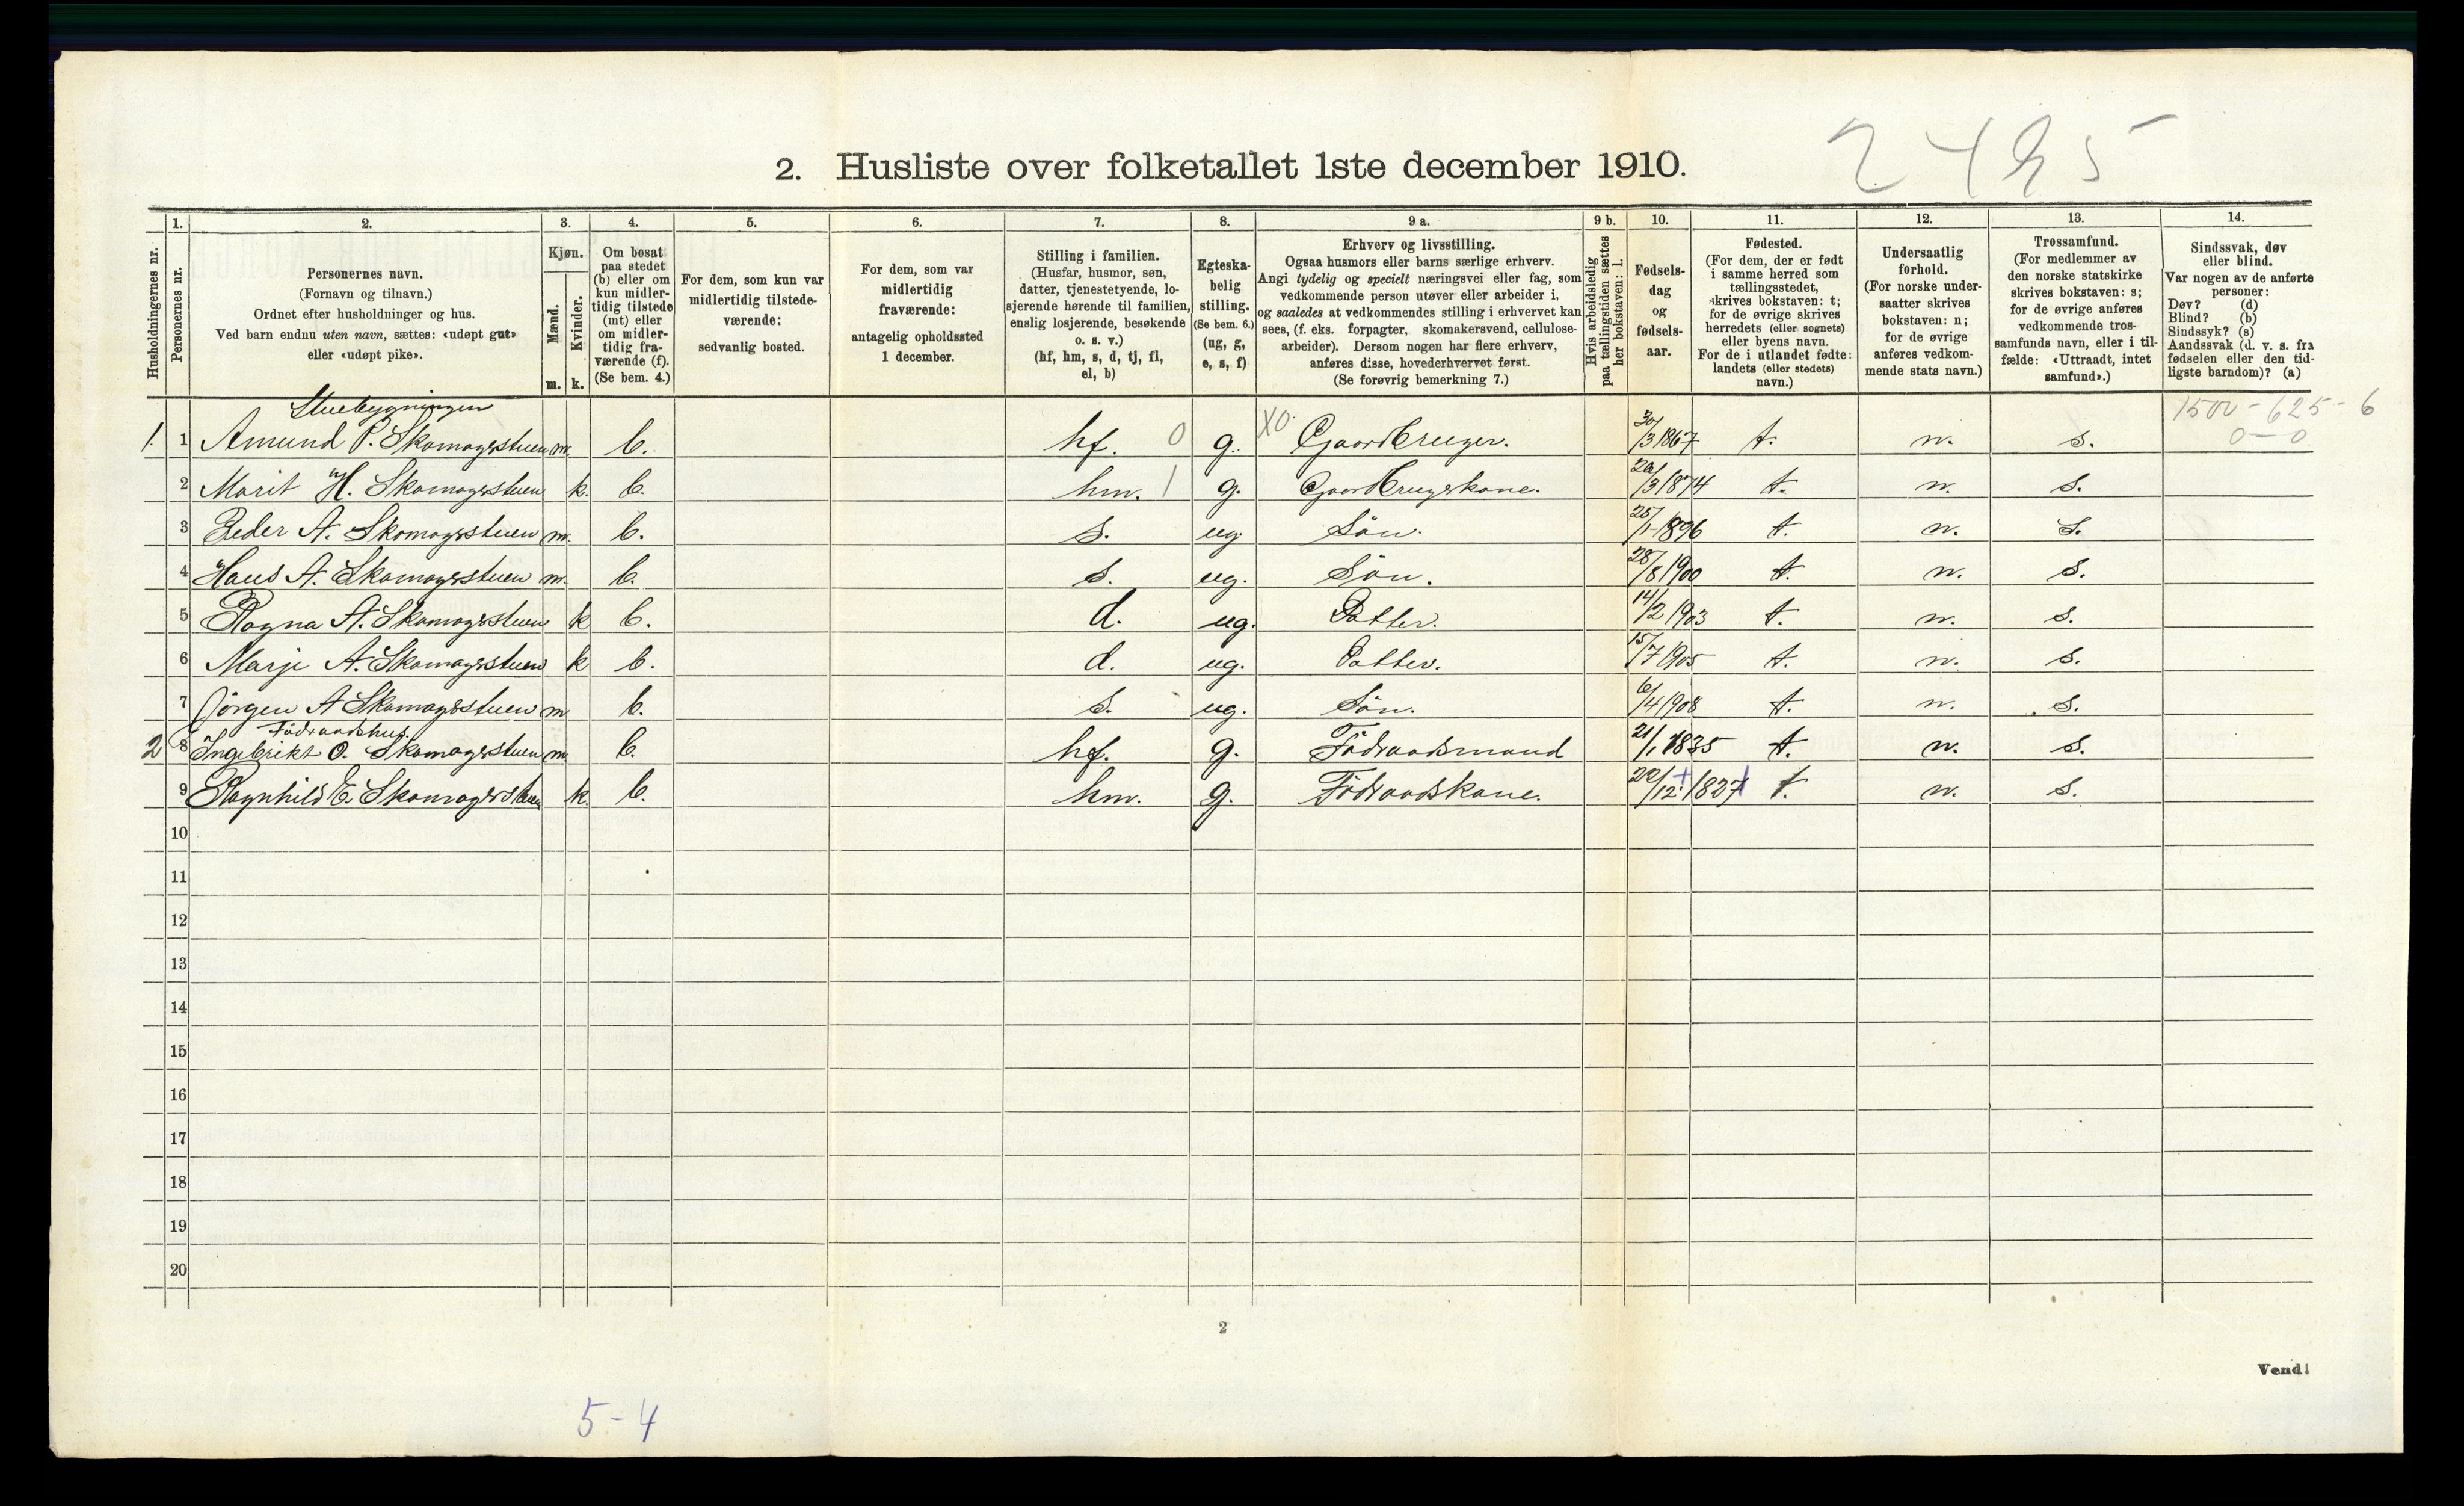 2. Husliste over folketallet 1ste december 1910.
2485
Husholdningernes nr.
1.
Personernes nr.
2.
Personernes navn.
(Fornavn og tilnavn.)
Ordnet efter husholdninger og hus.
Ved barn endnu uten navn, sættes: «udøpt gut»
eller «udøpt pike».
3.
Kjøn.
Mænd.
Kvinder.
m. k.
4.
Om bosat
paa stedet
(b) eller om
kun midler-
tidig tilstede
(mt) eller
om midler-
tidig fra-
værende (f).
(Se bem. 4.)
5.
For dem, som kun var
midlertidig tilstede-
værende:
sedvanlig bosted.
6.
For dem, som var
midlertidig
fraværende:
antagelig opholdssted
1 december.
7.
Stilling i familien.
(Husfar, husmor, søn,
datter, tjenestetyende, lo-
sjerende hørende til familien,
enslig losjerende, besøkende
o. s. v.)
(hf, hm, s, d, tj, fl,
el, b)
8.
Egteska-
belig
stilling.
(Se bem. 6.)
(ug, g,
e, s, f)
9 a.
Erhverv og livsstilling.
Ogsaa husmors eller barns særlige erhverv.
Angi tydelig og specielt næringsvei eller fag, som
vedkommende person utøver eller arbeider i,
og saaledes at vedkommendes stilling i erhvervet kan
sees, (f. eks. forpagter, skomakersvend, cellulose-
arbeider). Dersom nogen har flere erhverv,
anføres disse, hovederhvervet først.
(Se forøvrig bemerkning 7.)
9 b.
Hvis arbeidsledig
paa tællingstiden sættes
her bokstaven: l.
10.
Fødsels-
dag
og
fødsels-
aar.
11.
Fødested.
(For dem, der er født
i samme herred som
tællingsstedet,
skrives bokstaven: t;
for de øvrige skrives
herredets (eller sognets)
eller byens navn.
For de i utlandet fødte:
landets (eller stedets)
navn.)
12.
Undersaatlig
forhold.
(For norske under-
saatter skrives
bokstaven: n;
for de øvrige
anføres vedkom-
mende stats navn.)
13.
Trossamfund.
(For medlemmer av
den norske statskirke
skrives bokstaven: s;
for de øvrige anføres
vedkommende tros-
samfunds navn, eller i til-
fælde: «Uttraadt, intet
samfund».)
14.
Sindssvak, døv
eller blind.
Var nogen av de anførte
personer:
Døv? (d)
Blind? (b)
Sindssyk? (s)
Aandssvak (d. v. s. fra
fødselen eller den tid-
ligste barndom)? (a)
Stuebygningen
1500 - 625 - 6
0 - 0
1. 1 Amund P. Skomagerstuen m. b. hf. 0 g. X0. Gaardbruger. 30/3 1867 t. n. s.
2 Marit H. Skomagerstuen k. b. hm. 1 g. Gaardbrugerkone. 1874 t. n. s.
3 Peder A. Skomagerstuen m. b. s. ug Sön. 25/1 1896 t. n. s.
4 Hans A. Skomagerstuen m. b. s. ug. Sön. 28/8 1900 t. n. s.
5 Ragna A. Skomagerstuen k b. d. ug. Datter. 14/2 1903 t. n. s.
6 Marje A. Skomagerstuen k b. d. ug. Datter. 15/7 1905 t. n. s.
7 Jörgen A Skomagerstuen m b. s. ug. Sön. 6/4 1908 t. n. s.
Födraadshus.
2 8 Ingebrikt O. Skomagerstuen m. b. hf. g. Födraadsmand 21/1 1835 t. n. s.
9 Ragnhild E. Skomagerstuen k. b. hm. g. Födraadskone. 1827 t. n. s.
10
11
12
13
14
15
16
17
18
19
20
2
Vend!
5-4